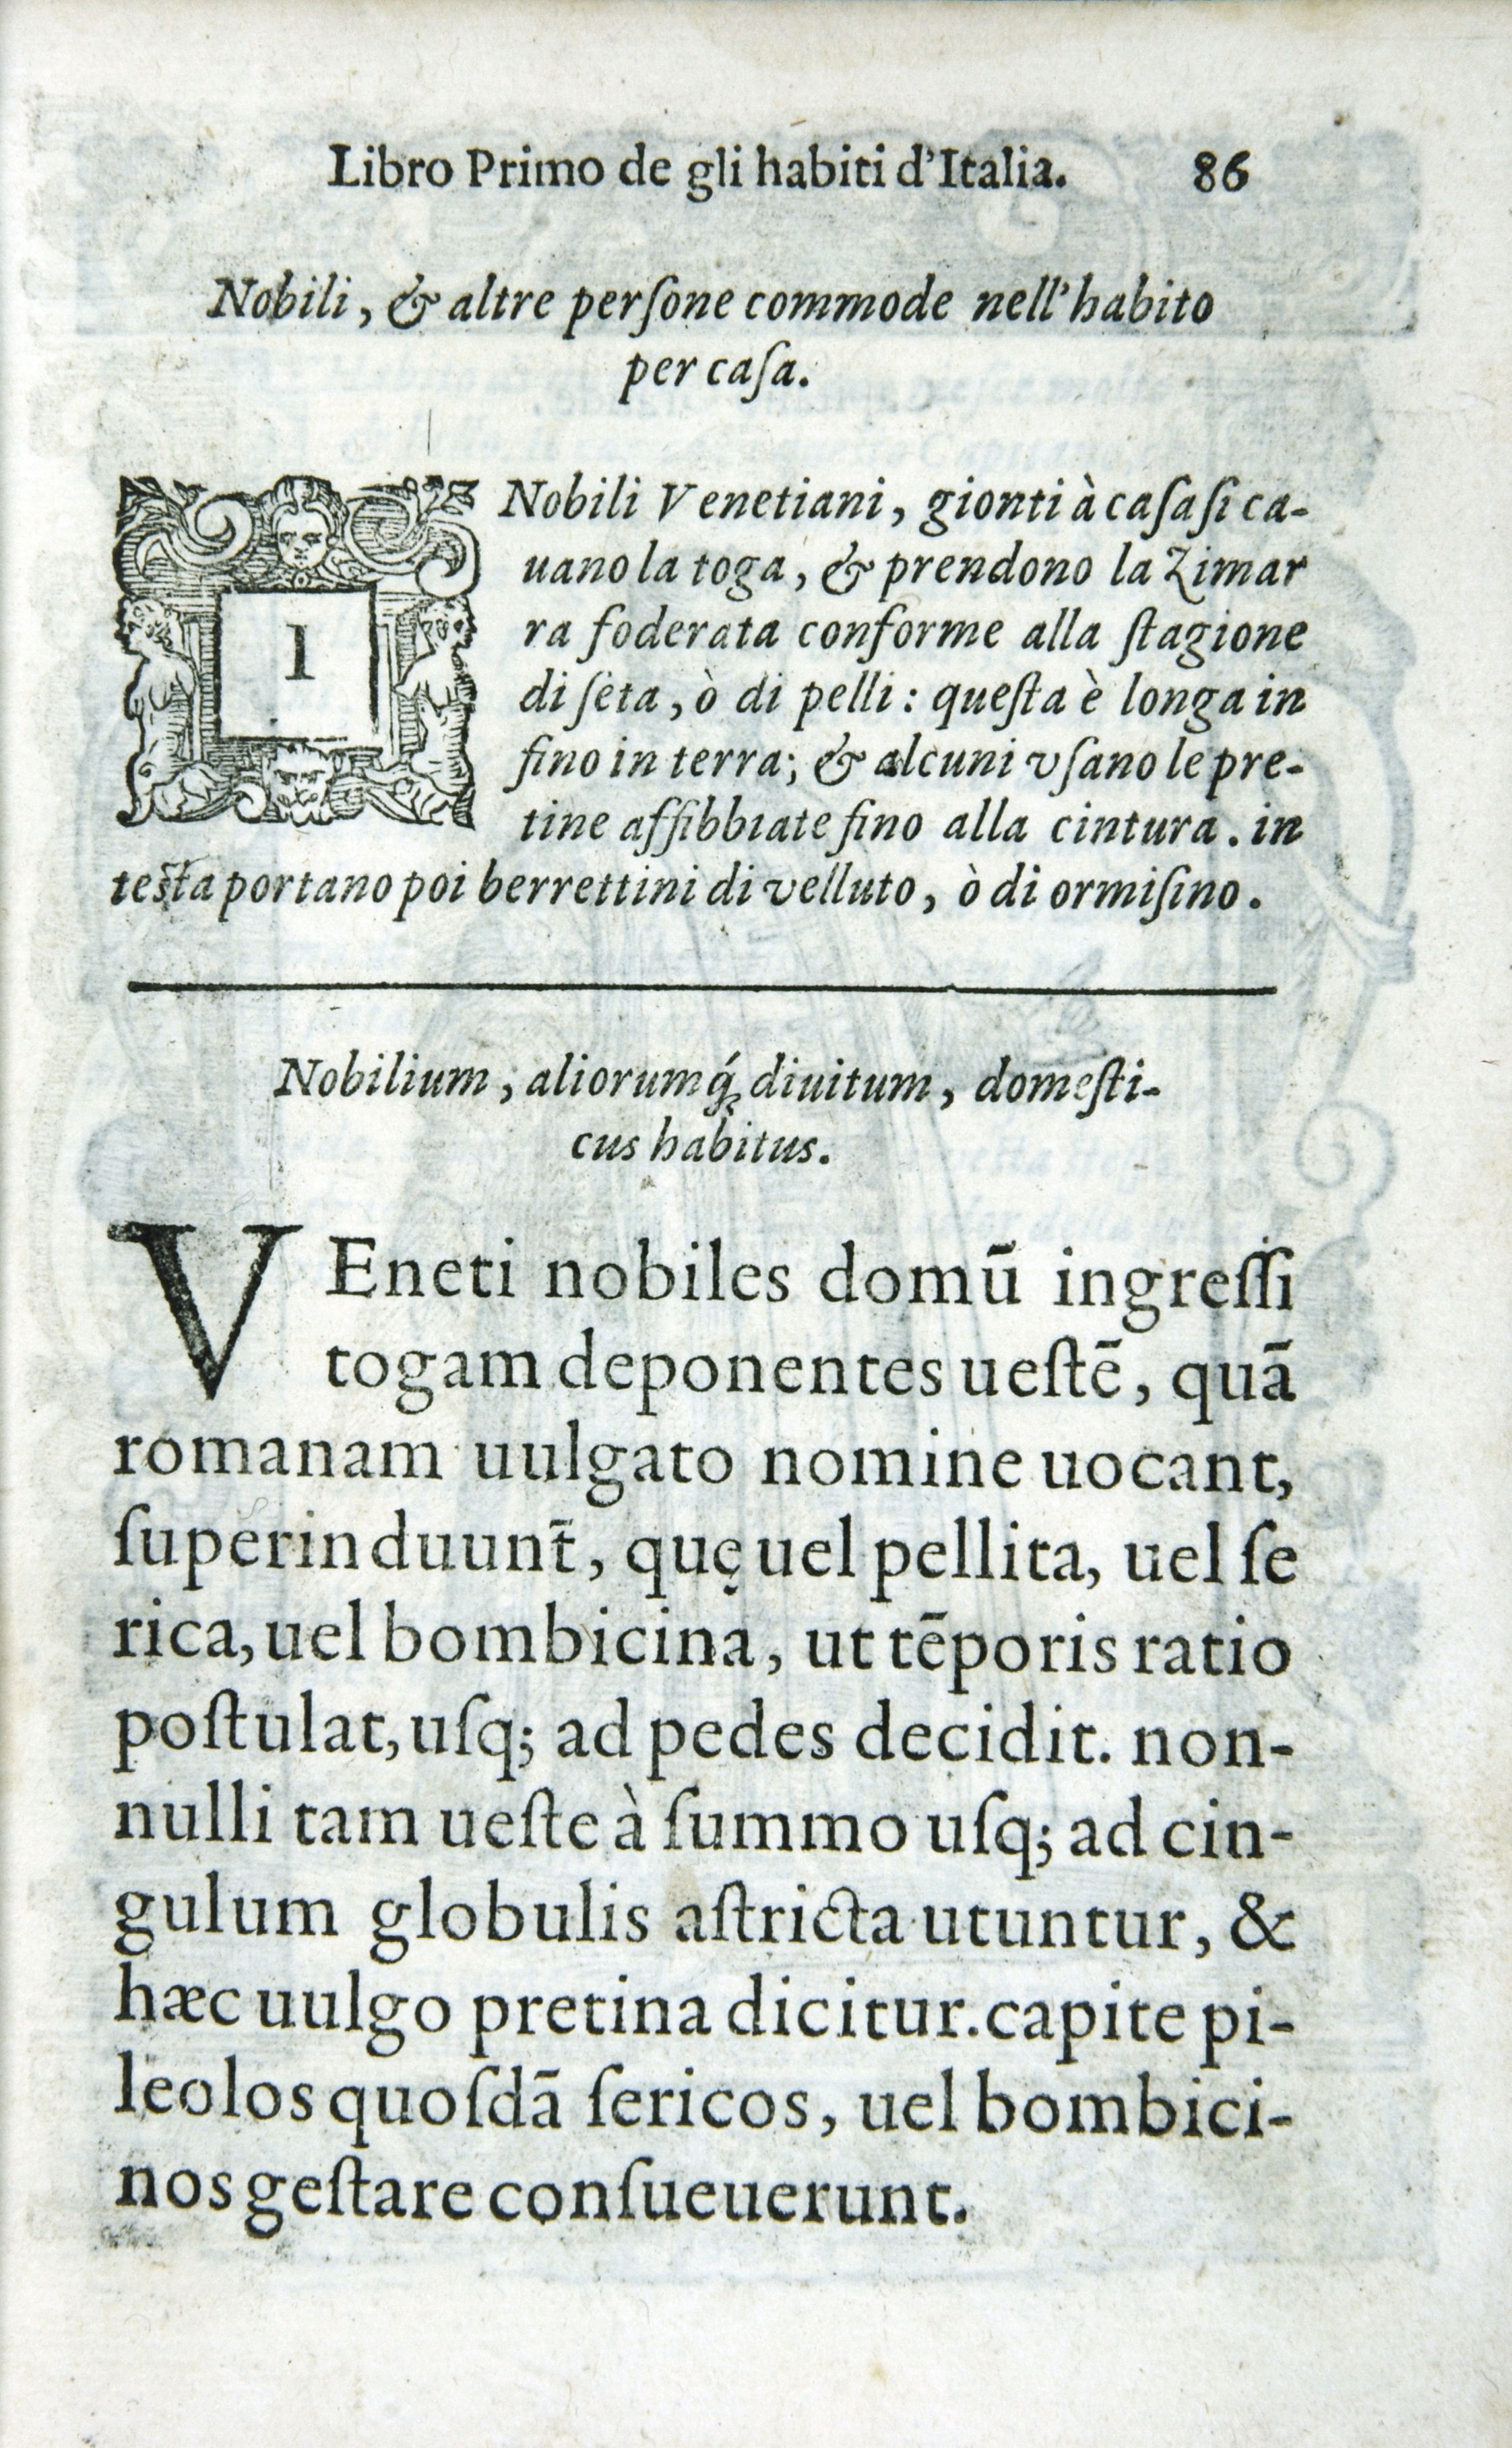 Libro Primo de gli habiti d'Italia. 86
Nobili, & altre perſone commode nell'habito
per caſa.
I Nobili Venetiani, gionti à caſa ſi ca-
uano la toga, & prendono la Zimar
ra foderata conforme alla ſtagione
di ſeta, ò di pelli: queſta è longa in
fino in terra; & alcuni vſano le pre-
tine affibbiate fino alla cintura. in
teſta portano poi berrettini di velluto, ò di ormiſino.
Nobilium, aliorumq́; diuitum, domeſti-
cus habitus.
VEneti nobiles domū ingreſſi
togam deponentes ueſtē, quā
romanam uulgato nomine uocant,
ſuperinduunt̄, quę uel pellita, uel ſe
rica, uel bombicina, ut tēporis ratio
poſtulat, uſq; ad pedes decidit. non-
nulli tam ueſte à ſummo uſq; ad cin-
gulum globulis aſtricta utuntur, &
hæc uulgo pretina dicitur. capite pi-
leolos quoſdā ſericos, uel bombici-
nos geſtare conſueuerunt.